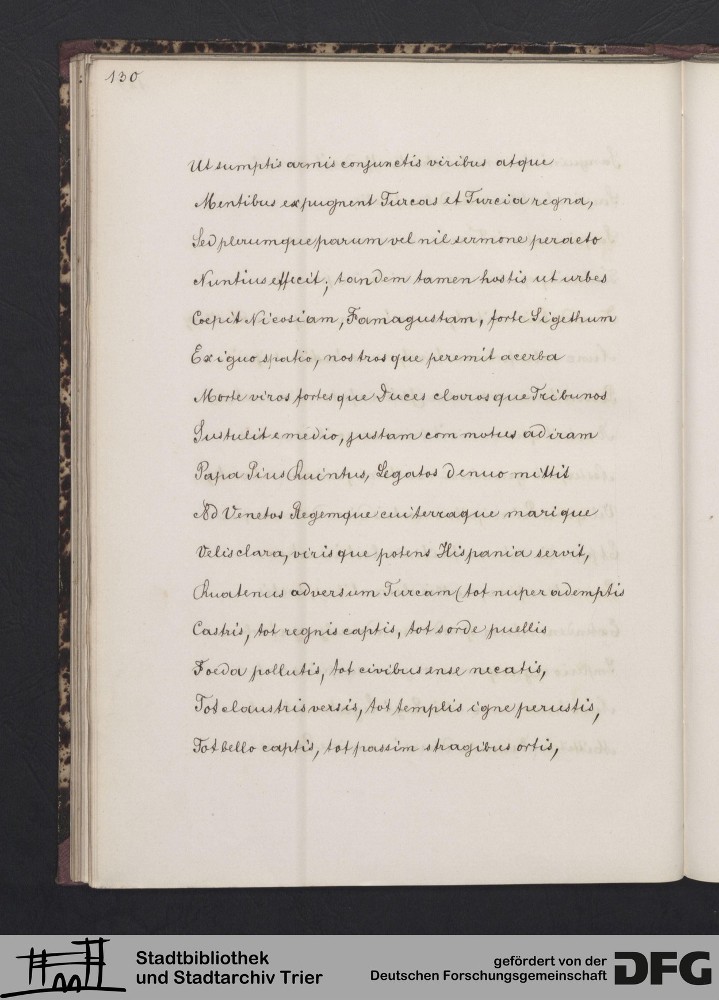 130
Ut sumptis armis conjunctis viribus atque
Mentibus expugnent Turcas et Turcia regna,
Sed plerumque parum vel nil sermone peracto
Nuntius effecit; tandem tamen hostis ut urbes
Coepit Nicosiam, Famagustam, forte Sigethum
Exiguo spatio, nostrosque peremit acerba
Morte viros fortesque Duces clarosque Tribunos
Sustulit e medio, justam commotus ad iram
Papa Pius Quintus, Legatos denuo mittit
Ad Venetos Regemque cui terraque marique
Velis clara, virisque potens Hispania servit,
Quatenus adversum Turcam (tot nuper ademptis
Castris, tot regnis captis, tot sorde puellis
Foeda pollutis, tot civibus ense necatis,
Tot claustris versis, tot templis igne perustis,
Tot bello captis, tot passim stragibus ortis,
Stadtbibliothek
und Stadtarchiv Trier
gefördert von der
Deutschen Forschungsgemeinschaft
DFG